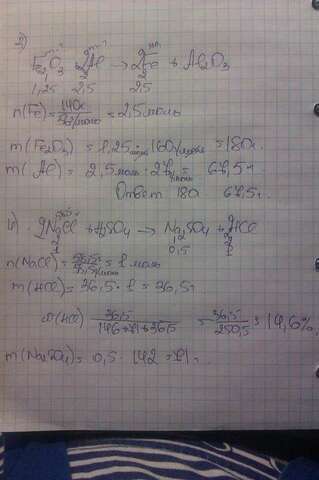 2)
Fe2O3 + 2Al → 2Fe + Al2O3
1,25 2,5 2,5
n(Fe) = 140г / 56г/моль = 2,5 моль
m(Fe2O3) = 1,25 моль · 160г/моль = 180г.
m(Al) = 2,5 моль · 27г/моль = 67,5г.
Ответ 180 67,5г.
2NaCl + H2SO4 → Na2SO4 + 2HCl
1 0,5 1
n(NaCl) = = 1 моль
m(HCl) = 36,5 · 1 = 36,5г
(HCl) 36,5 / 146+71+36,5 = 36,5 / 250,5 = 14,6%
m(Na2SO4) = 0,5 · 142 = 71г.